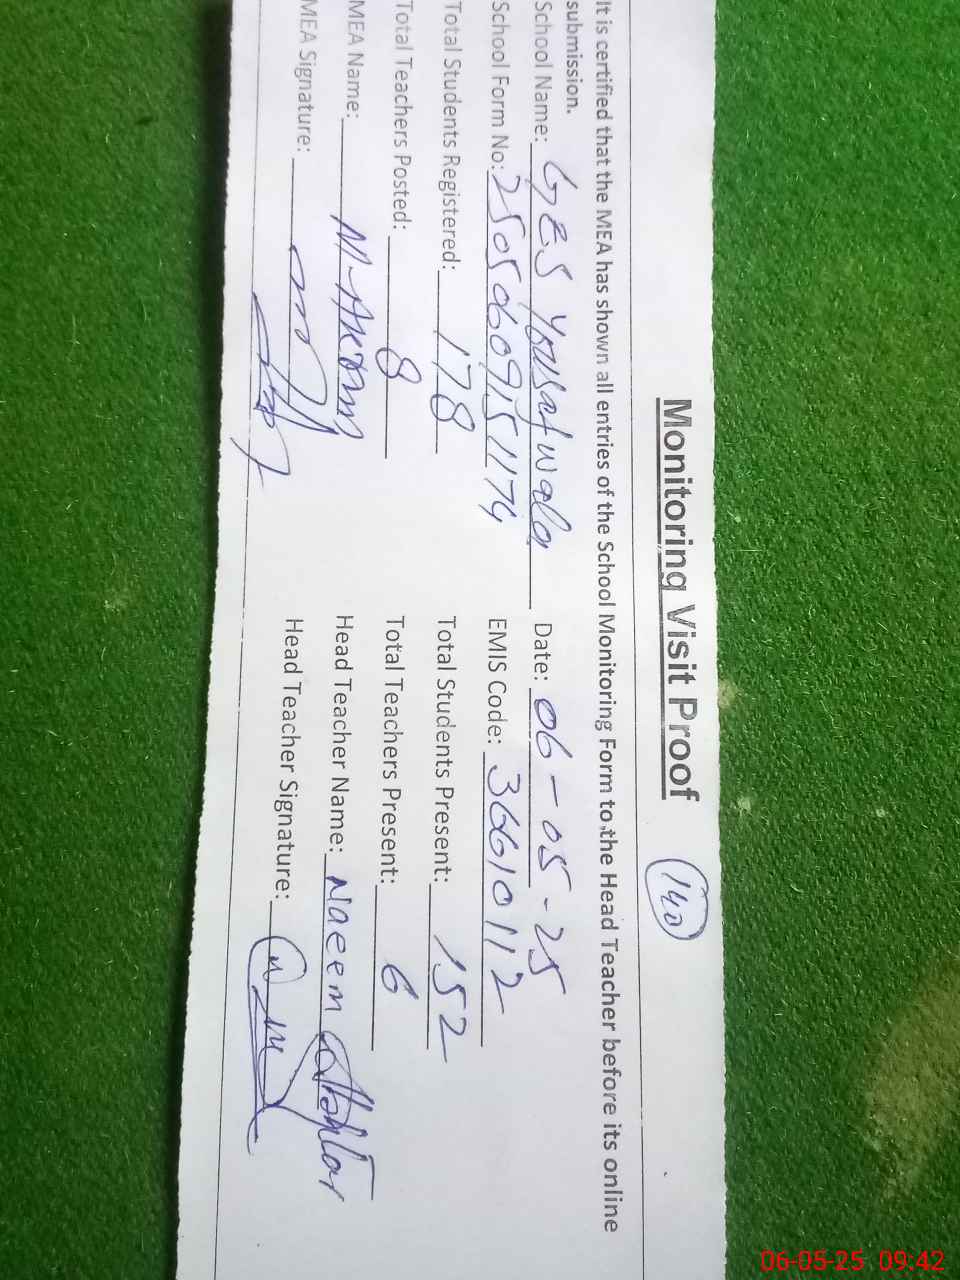 Monitoring Visit Proof
140
It is certified that the MEA has shown all entries of the School Monitoring Form to the Head Teacher before its online
submission.
School Name: GES Yousaf wala Date: 06-05-25
School Form No: 25050609151174 EMIS Code: 36610112
Total Students Registered: 178 Total Students Present: 152
Total Teachers Posted: 8 Total Teachers Present: 6
MEA Name: M-Akram Head Teacher Name: Naeem
MEA Signature: Head Teacher Signature:
06-05-25 09:42